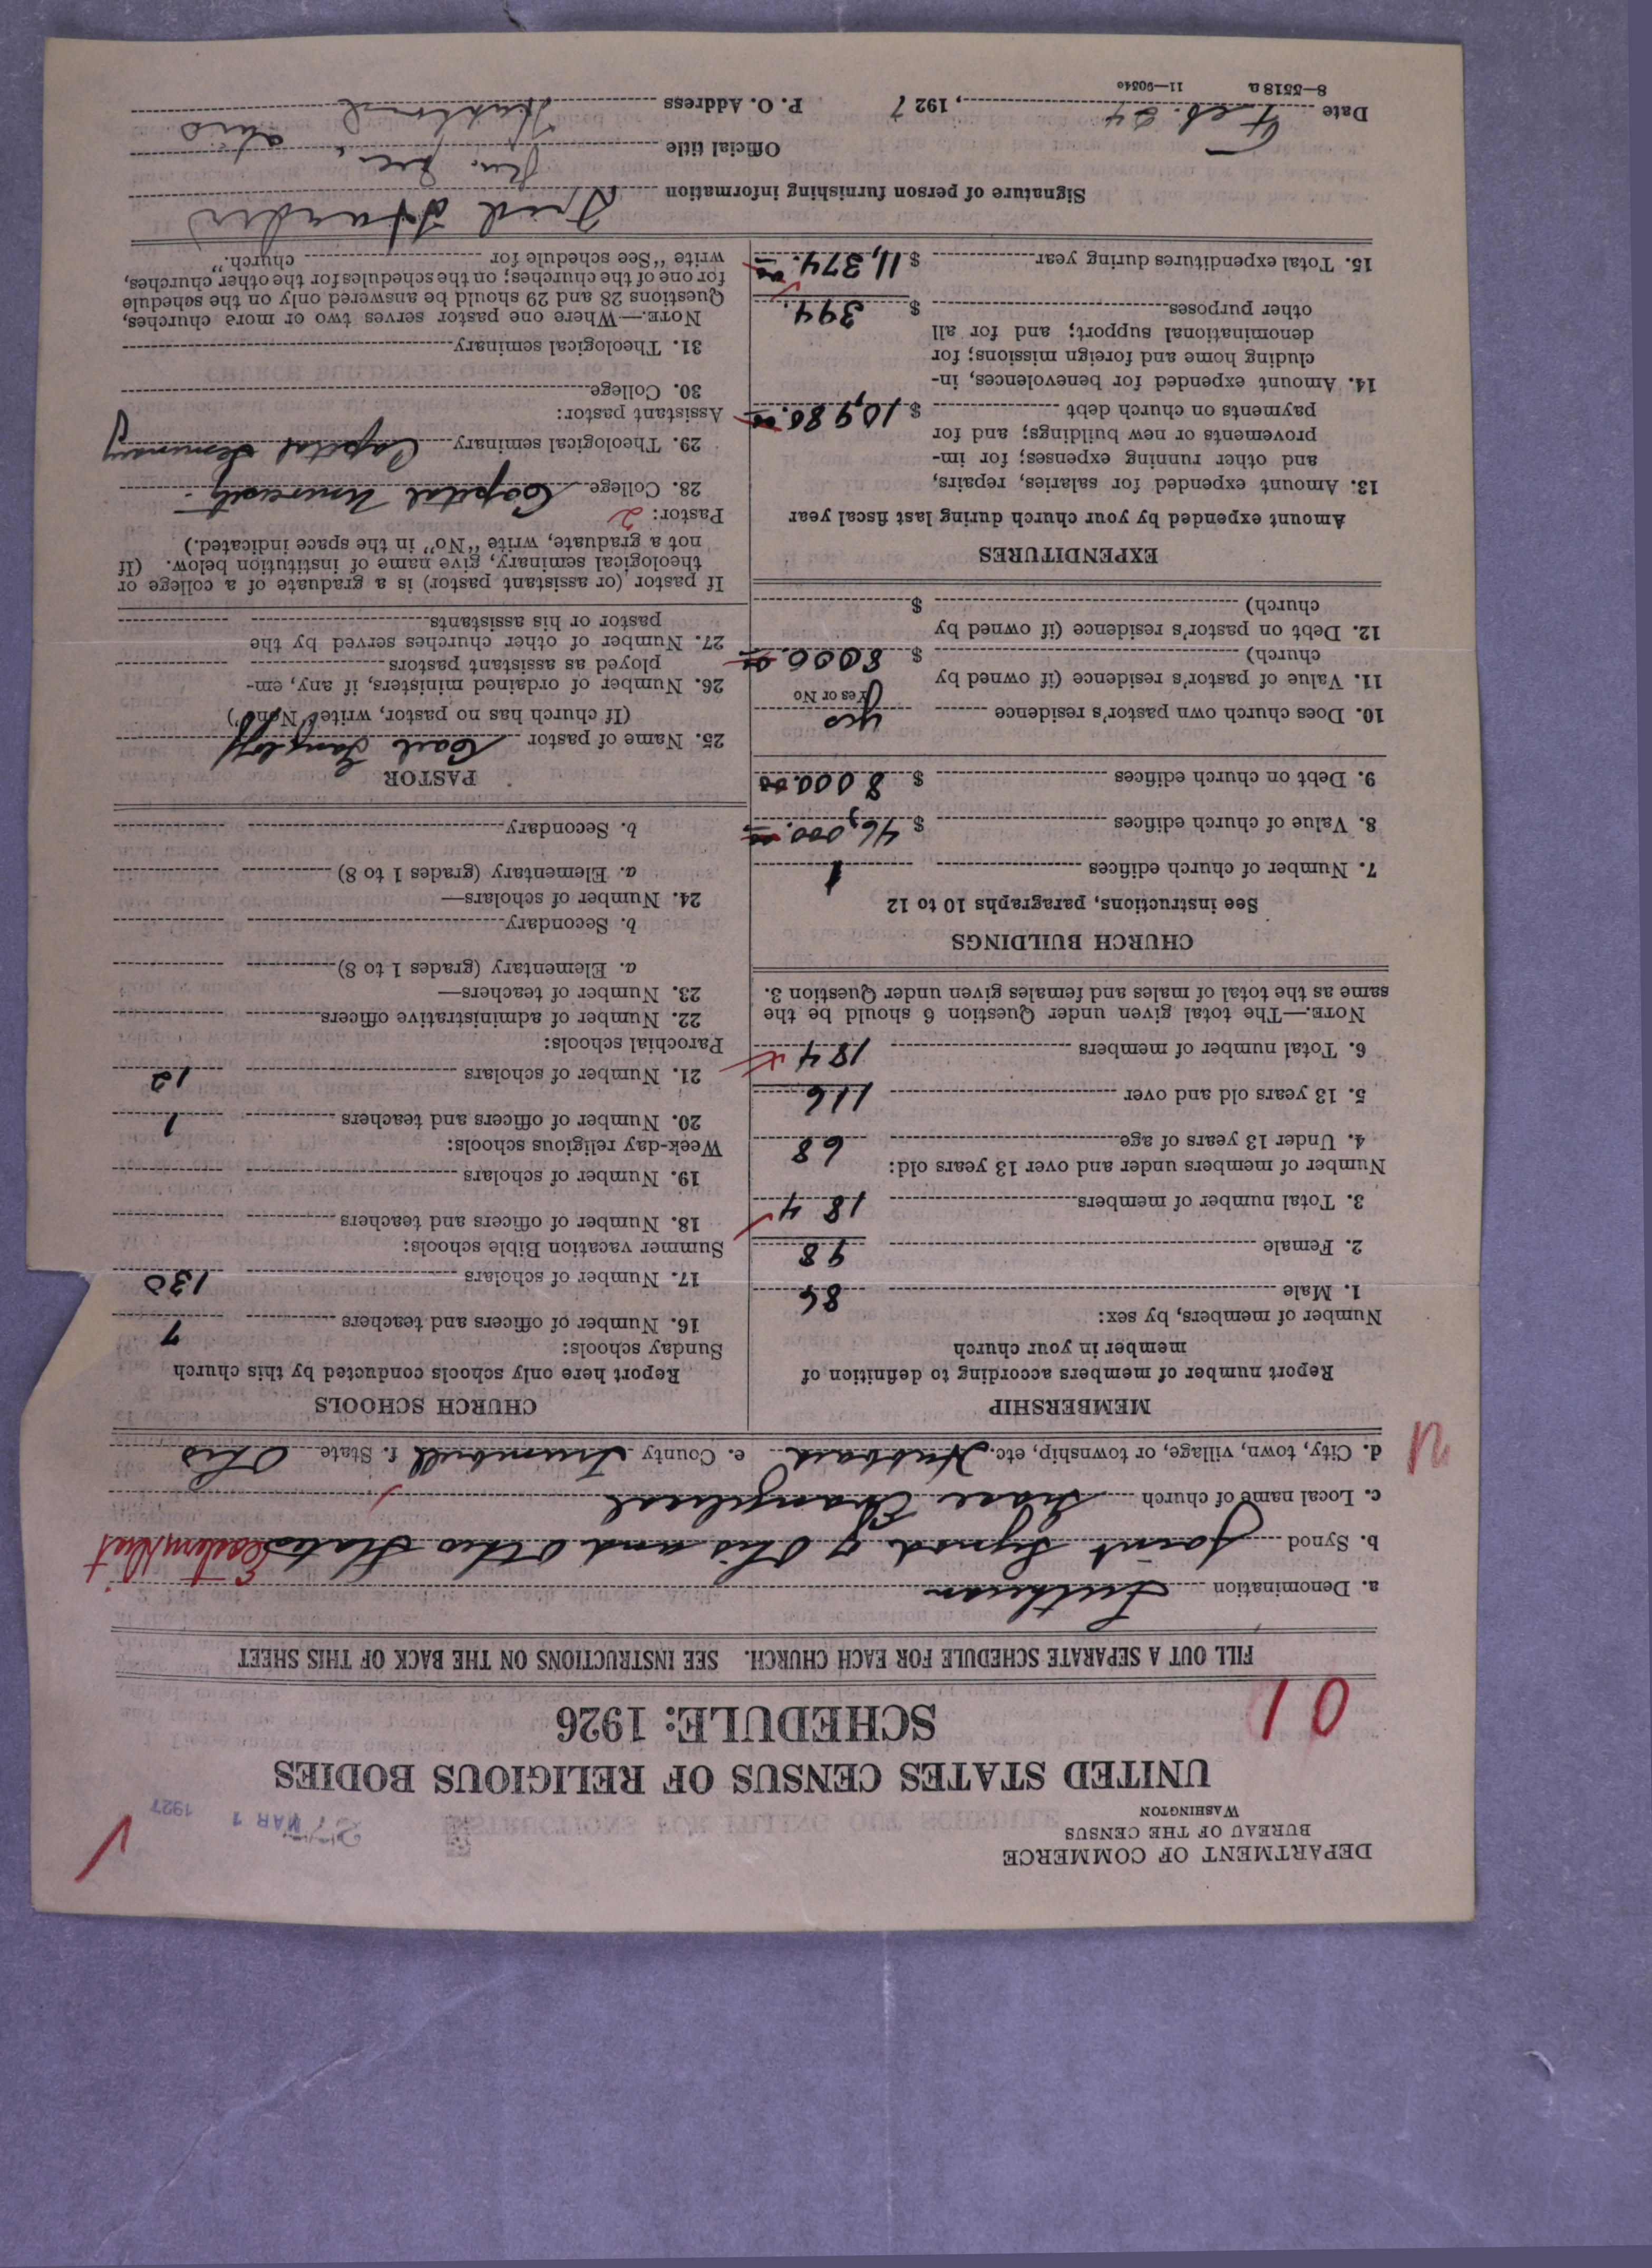 DEPARTMENT OF COMMERCE
BUREAU OF THE CENSUS
WASHINGTON
MAR 1 1927
UNITED STATES CENSUS OF RELIGIOUS BODIES
SCHEDULE: 1926
01
FILL OUT A SEPARATE SCHEDULE FOR EACH CHURCH. SEE INSTRUCTIONS ON THE BACK OF THIS SHEET
a. Denomination Lutheran
b. Synod Joint Synod of Ohio and Other States Eastern Dist
c. Local name of church Grace Evangelical
d. City, town, village, or township, etc. Hubbard e. County Trumbull f. State Ohio
MEMBERSHIP
Report number of members according to definition of
member in your church
Number of members, by sex:
1. Male 86
2. Female 98
3. Total number of members 184
Number of members under and over 13 years old:
4. Under 13 years of age 68
5. 13 years old and over 116
6. Total number of members 184
NOTE.—The total given under Question 6 should be the
same as the total of males and females given under Question 3.
CHURCH BUILDINGS
See instructions, paragraphs 10 to 12
7. Number of church edifices 1
8. Value of church edifices $ 46,000.00
9. Debt on church edifices $ 8000.00
10. Does church own pastor's residence yes
Yes or No
11. Value of pastor's residence (if owned by
church) $ 8000.00
12. Debt on pastor's residence (if owned by
church) $
EXPENDITURES
Amount expended by your church during last fiscal year
13. Amount expended for salaries, repairs,
and other running expenses; for im-
provements or new buildings; and for
payments on church debt $ 10,980.00
14. Amount expended for benevolences, in-
cluding home and foreign missions; for
denominational support; and for all
other purposes $ 394.
15. Total expenditures during year $ 11,374.00
CHURCH SCHOOLS
Report here only schools conducted by this church
Sunday schools:
16. Number of officers and teachers 7
17. Number of scholars 130
Summer vacation Bible schools:
18. Number of officers and teachers
19. Number of scholars
Week-day religious schools:
20. Number of officers and teachers 1
21. Number of scholars 12
Parochial schools:
22. Number of administrative officers
23. Number of teachers—
a. Elementary (grades 1 to 8)
b. Secondary
24. Number of scholars—
a. Elementary (grades 1 to 8)
b. Secondary
PASTOR
25. Name of pastor Carl Gangloff
(If church has no pastor, write "None")
26. Number of ordained ministers, if any, em-
ployed as assistant pastors
27. Number of other churches served by the
pastor or his assistants
If pastor (or assistant pastor) is a graduate of a college or
theological seminary, give name of institution below. (If
not a graduate, write "No" in the space indicated.)
Pastor: 2
28. College Capital University
29. Theological seminary Capital Seminary
Assistant pastor:
30. College
31. Theological seminary
NOTE.—Where one pastor serves two or more churches,
Questions 28 and 29 should be answered only on the schedule
for one of the churches; on the schedules for the other churches,
write "See schedule for church."
Signature of person furnishing information Fred
Official title Sec.
Date Feb. 24, 1927 P. O. Address Hubbard Ohio
8—5518a 11—9034c